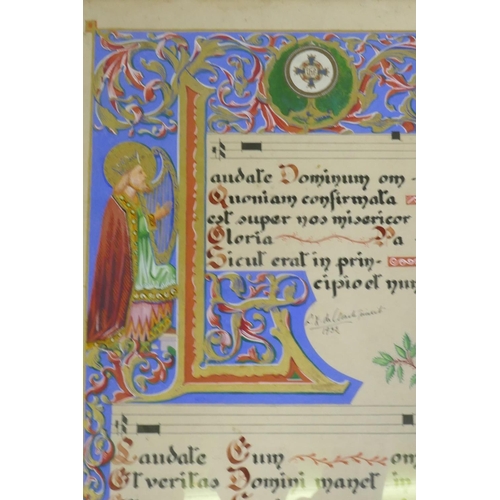 Laudate Dominum om-
Quoniam confirmata
est super nos misericor
Gloria Pa
Sicut erat in prin-
cipio et nun
1932
Laudate Eum om
Et veritas Domini manet in